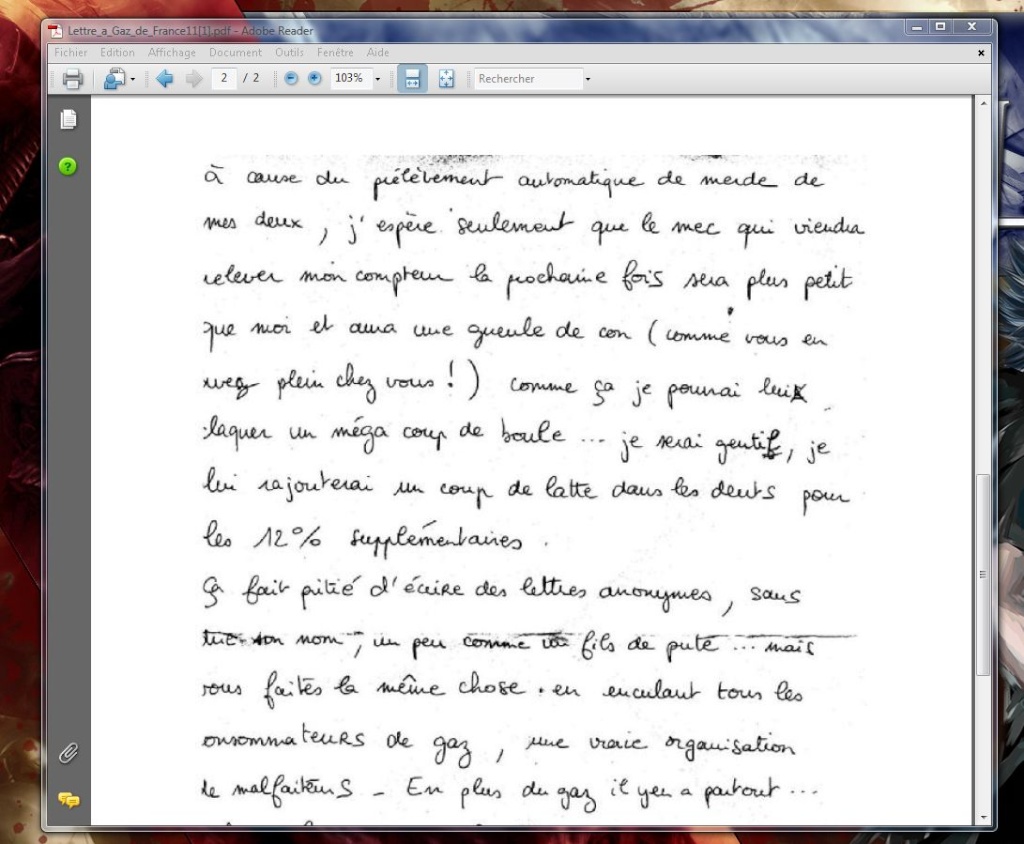 Lettre_a_Gaz_de_France11[1].pdf - Adobe Reader
Fichier Edition Affichage Document Outils Fenêtre Aide
2 / 2 103% Rechercher
à cause du prélèvement automatique de merde de
mes deux, j'espère seulement que le mec qui viendra
relever mon compteur la prochaine fois sera plus petit
que moi et aura une gueule de con (comme vous en
avez plein chez vous !) comme ça je pourrai lui
claquer un méga coup de boule ... je serai gentil, je
lui rajouterai un coup de latte dans les dents pour
les 12% supplémentaires.
Ça fait pitié d'écrire des lettres anonymes, sans
son nom, un peu comme un fils de pute ... mais
vous faites la même chose en enculant tous les
onsommateurs de gaz, une vraie organisation
de malfaiteurs - En plus du gaz il y en a partout ...